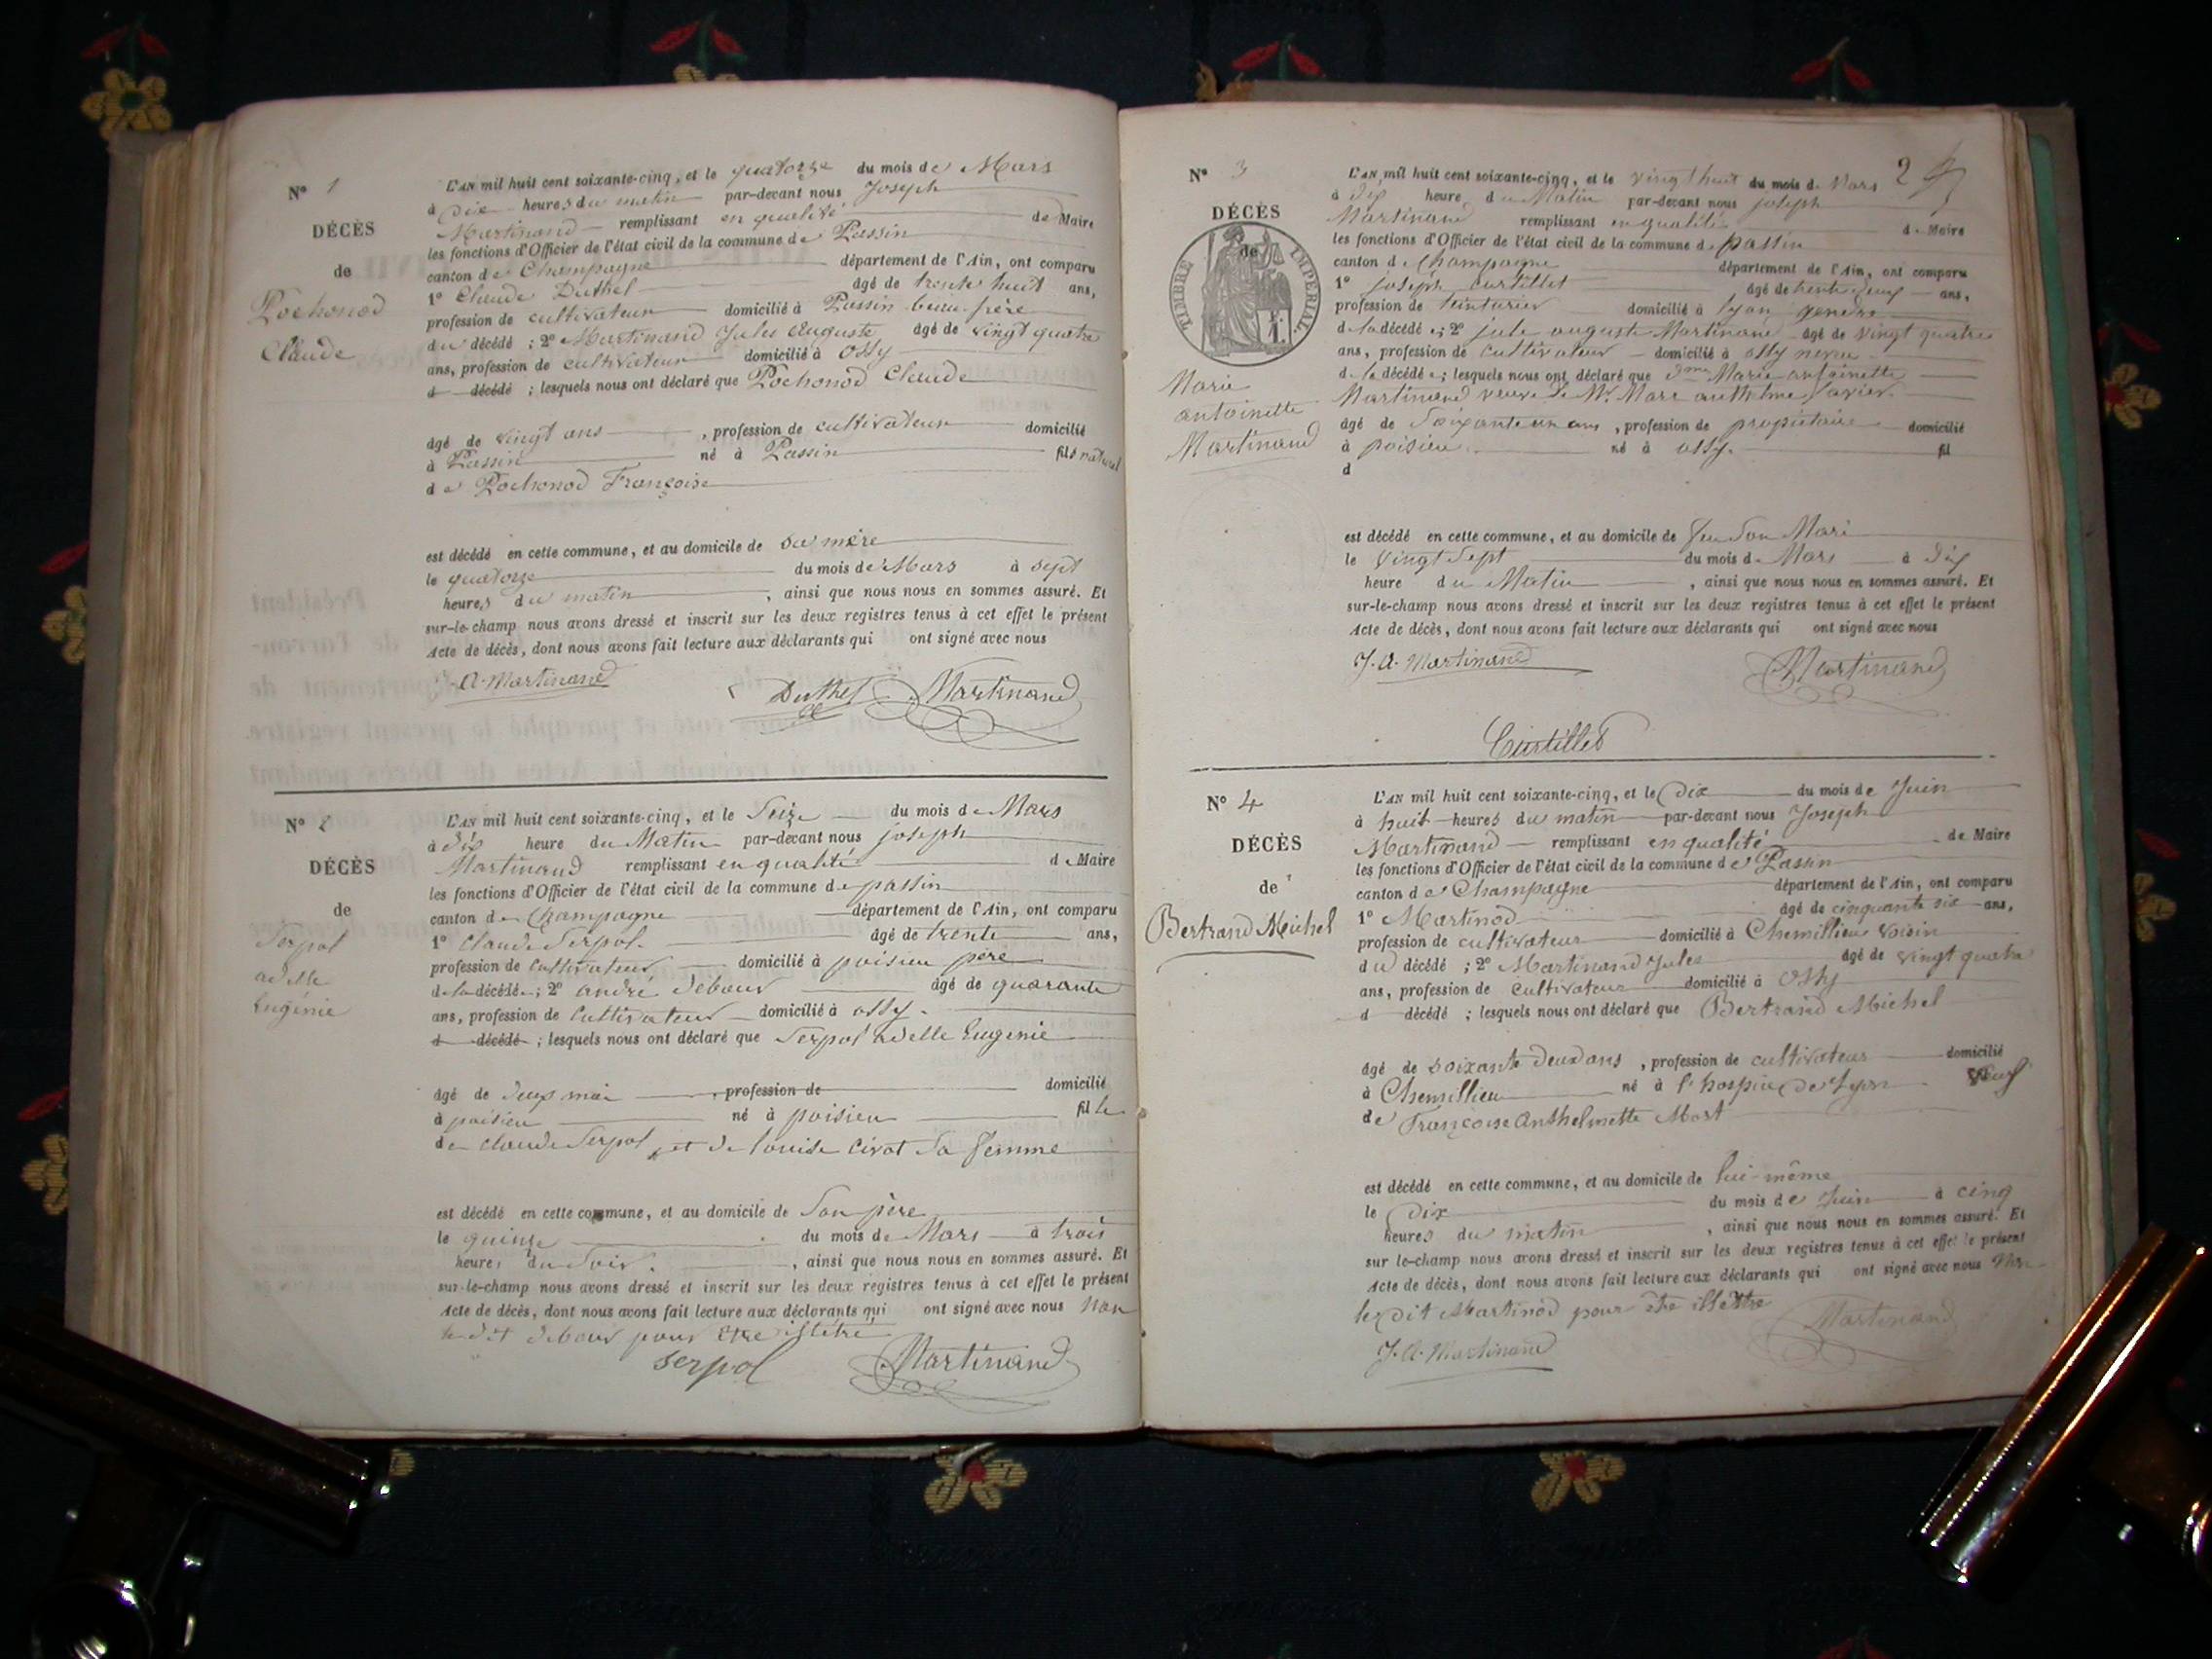 N° 1
DÉCÈS
de
Pochonod
Claude
L'AN mil huit cent soixante-cinq, et le quatorze du mois de Mars
à dix heures du matin par-devant nous Joseph
Martinand remplissant en qualité de Maire
les fonctions d'Officier de l'état civil de la commune de Passin
canton de Champagne département de l'Ain, ont comparu
1° Claude Duthel âgé de trente huit ans,
profession de cultivateur domicilié à Passin beau frère
du décédé ; 2° Martinand Jules Auguste âgé de vingt quatre
ans, profession de cultivateur domicilié à Ossy
d décédé ; lesquels nous ont déclaré que Pochonod Claude
âgé de vingt ans , profession de cultivateur domicilié
à Passin né à Passin fils naturel
de Pochonod Françoise
est décédé en cette commune, et au domicile de sa mère
le quatorze du mois de Mars à sept
heures du matin , ainsi que nous nous en sommes assuré. Et
sur-le-champ nous avons dressé et inscrit sur les deux registres tenus à cet effet le présent
Acte de décès, dont nous avons fait lecture aux déclarants qui ont signé avec nous
A. Martinand
Duthel Martinand
N°
DÉCÈS
de
Serpol
adelle
Eugénie
L'AN mil huit cent soixante-cinq, et le Seize du mois de Mars
à dix heure du Matin par-devant nous joseph
Martinand remplissant en qualité de Maire
les fonctions d'Officier de l'état civil de la commune de passin
canton de Champagne département de l'Ain, ont comparu
1° Claude Serpol âgé de trente ans,
profession de Cultivateur domicilié à poisieu père
de la décédée ; 2° andré debour âgé de quarante
ans, profession de Cultivateur domicilié à ossy
d décédé ; lesquels nous ont déclaré que Serpol adelle Eugenie
âgé de deux moi , profession de domicilié
à poisieu né à poisieu fille
de claude Serpol et de louise Civot Sa femme
est décédé en cette commune, et au domicile de Son père
le quinze du mois de Mars à trois
heures du Soir. , ainsi que nous nous en sommes assuré. Et
sur-le-champ nous avons dressé et inscrit sur les deux registres tenus à cet effet le présent
Acte de décès, dont nous avons fait lecture aux déclarants qui ont signé avec nous Non
le dit debour pour être illétré
serpol Martinand
2
N° 3
DÉCÈS
de
TIMBRE IMPÉRIAL
Marie
antoinette
Martinand
L'AN mil huit cent soixante-cinq, et le vingt huit du mois de Mars
à dix heure du Matin par-devant nous joseph
Martinand remplissant en qualité de Maire
les fonctions d'Officier de l'état civil de la commune de passin
canton de Champagne département de l'Ain, ont comparu
1° joseph curtillet âgé de trente deux ans,
profession de teinturier domicilié à lyon gendre
de la décédée ; 2° jule auguste Martinand âgé de vingt quatre
ans, profession de Cultivateur domicilié à ossy neveu
de la décédée ; lesquels nous ont déclaré que dme Marie antoinette
Martinand veuve de Mr. Marc anthelme Savier
âgé de Soixante un ans , profession de propietaire domicilié
à poisieu né à ossy. fil
d
est décédé en cette commune, et au domicile de feu Son Mari
le vingt Sept du mois de Mars à dix
heure du Matin , ainsi que nous nous en sommes assuré. Et
sur-le-champ nous avons dressé et inscrit sur les deux registres tenus à cet effet le présent
Acte de décès, dont nous avons fait lecture aux déclarants qui ont signé avec nous
J. A. Martinand Martinand
Curtillet
N° 4
DÉCÈS
de
Bertrand Michel
L'AN mil huit cent soixante-cinq, et le Dix du mois de Juin
à huit heures du matin par-devant nous Joseph
Martinand remplissant en qualité de Maire
les fonctions d'Officier de l'état civil de la commune de Passin
canton de Champagne département de l'Ain, ont comparu
1° Martinod âgé de cinquante six ans,
profession de cultivateur domicilié à Chemillieu voisin
du décédé ; 2° Martinand Jules âgé de vingt quatre
ans, profession de cultivateur domicilié à Ossy
d décédé ; lesquels nous ont déclaré que Bertrand Michel
âgé de soixante deux ans , profession de cultivateur domicilié
à Chemillieu né à l'hospice de Lyon veuf
de Françoise Anthelmette Mort
est décédé en cette commune, et au domicile de lui-même
le Dix du mois de Juin à cinq
heures du matin , ainsi que nous nous en sommes assuré. Et
sur le-champ nous avons dressé et inscrit sur les deux registres tenus à cet effet le présent
Acte de décès, dont nous avons fait lecture aux déclarants qui ont signé avec nous Non
le dit Martinod pour être illettré
J. A. Martinand Martinand